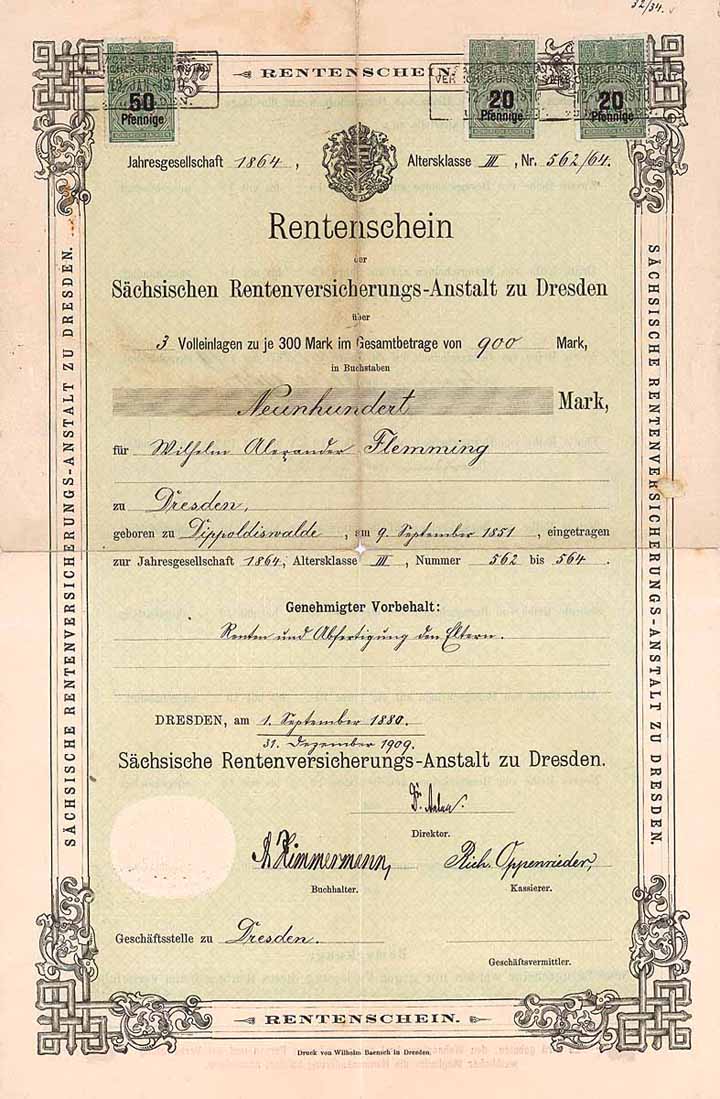 32/34.
RENTENSCHEIN.
50
Pfennige
20
Pfennige
20
Pfennige
Jahresgesellschaft 1864, Altersklasse III, Nr. 562/64.
Rentenschein
der
Sächsischen Rentenversicherungs-Anstalt zu Dresden
über
3 Volleinlagen zu je 300 Mark im Gesamtbetrage von 900 Mark,
in Buchstaben
Neunhundert Mark,
für Wilhelm Alexander Flemming
zu Dresden,
geboren zu Dippoldiswalde, am 9. September 1851, eingetragen
zur Jahresgesellschaft 1864, Altersklasse III, Nummer 562 bis 564.
Genehmigter Vorbehalt:
Renten und Abfertigung den Eltern.
DRESDEN, am 1. September 1880.
31. Dezember 1909.
Sächsische Rentenversicherungs-Anstalt zu Dresden.
Dr.
Direktor.
A Zimmermann,
Rich. Oppenrieder,
Buchhalter.
Kassierer.
Geschäftsstelle zu Dresden.
Geschäftsvermittler.
SÄCHSISCHE RENTENVERSICHERUNGS-ANSTALT ZU DRESDEN.
SÄCHSISCHE RENTENVERSICHERUNGS-ANSTALT ZU DRESDEN.
RENTENSCHEIN.
Druck von Wilhelm Baensch in Dresden.